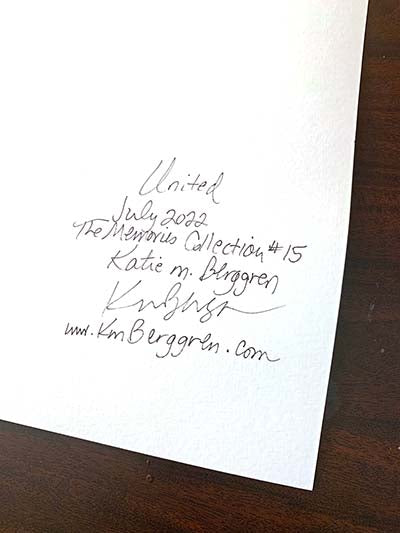 United
July 2022
The Memories Collection #15
Katie m. Berggren
KmBerggren
www.KmBerggren.com